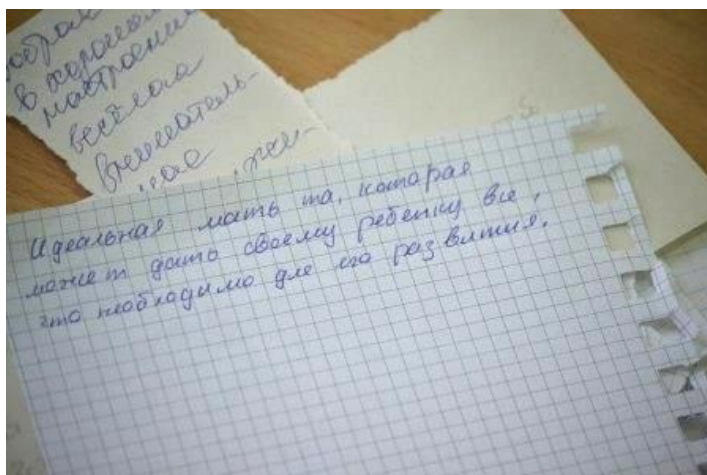 в хорошем
настроении
весёлая
вниматель-
ная
Идеальная мать та, которая
может дать своему ребенку все,
что необходимо для его развития.